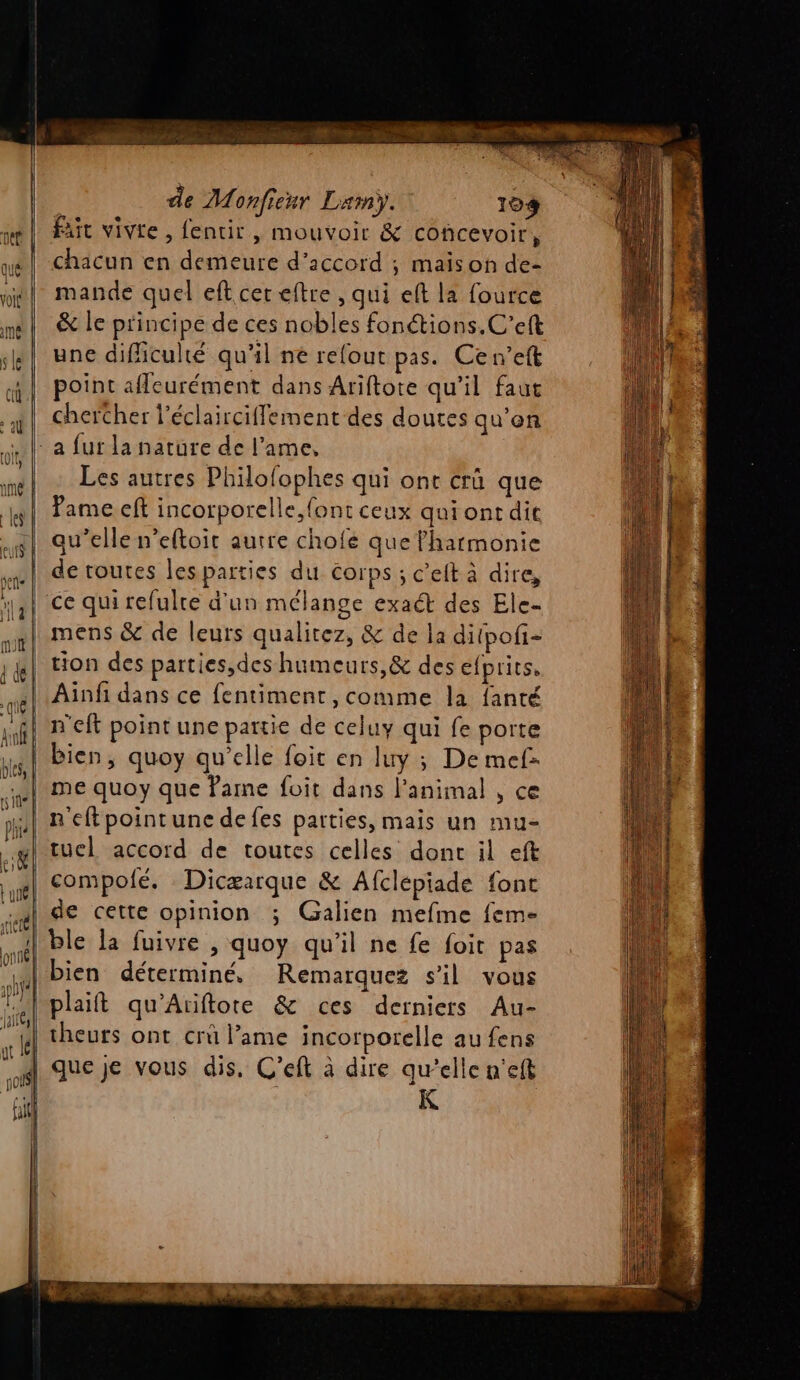 de Monſieur Lamy. 109
fait vivre, ſentir, mouvoir & concevoir,
chacun en demeure d'accord ; mais on de-
mande quel eſt cet eſtre, qui eſt la ſource
& le principe de ces nobles fonctions. C'eſt
une difficulté qu'il ne reſout pas. Ce n'eſt
point aſſeurément dans Ariſtote qu'il faut
chercher l'éclairciſſement des doutes qu'on
a ſur la nature de l'ame.
Les autres Philoſophes qui ont crû que
l'ame eſt incorporelle, ſont ceux qui ont dit
qu'elle n'eſtoit autre choſe que l'harmonie
de toutes les parties du corps ; c'eſt à dire,
ce qui reſulte d'un mélange exact des Ele-
mens & de leurs qualitez, & de la diſpoſi-
tion des parties, des humeurs, & des eſprits.
Ainſi dans ce ſentiment, comme la ſanté
n'eſt point une partie de celuy qui ſe porte
bien, quoy qu'elle ſoit en luy ; De meſ-
me quoy que l'ame ſoit dans l'animal, ce
n'eſt point une de ſes parties, mais un mu-
tuel accord de toutes celles dont il eſt
compoſé. Dicæarque & Aſclepiade ſont
de cette opinion ; Galien meſme ſem-
ble la ſuivre, quoy qu'il ne ſe ſoit pas
bien déterminé. Remarquez s'il vous
plaiſt qu'Ariſtote & ces derniers Au-
theurs ont crû l'ame incorporelle au ſens
que je vous dis. C'eſt à dire qu'elle n'eſt
K